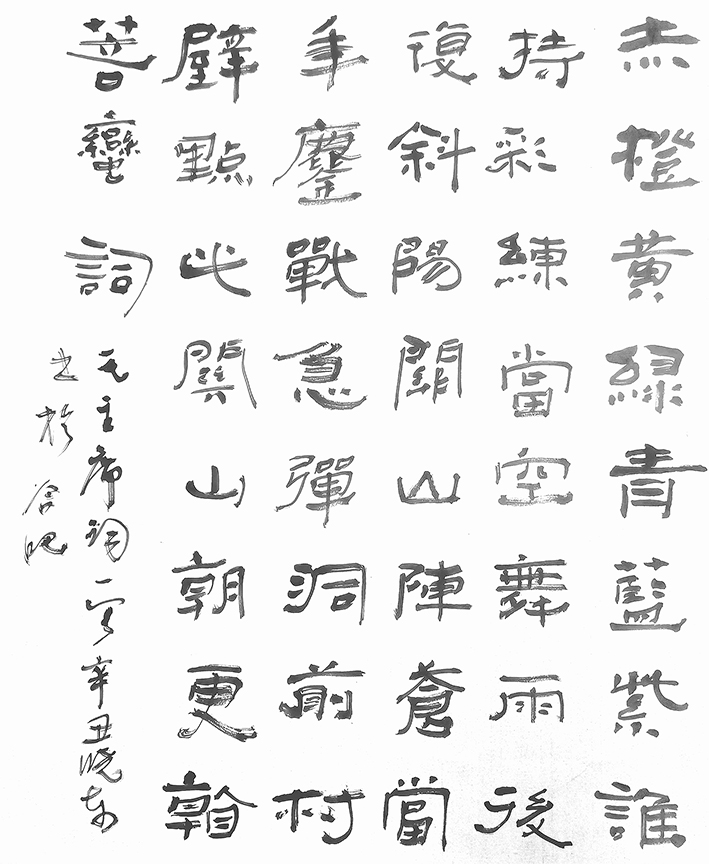 赤橙黃綠青藍紫誰
持彩練當空舞雨後
復斜陽關山陣蒼當
年鏖戰急彈洞前村
壁點此關山朝更
菩蠻詞
毛主席词一首辛丑曉东
书於合肥